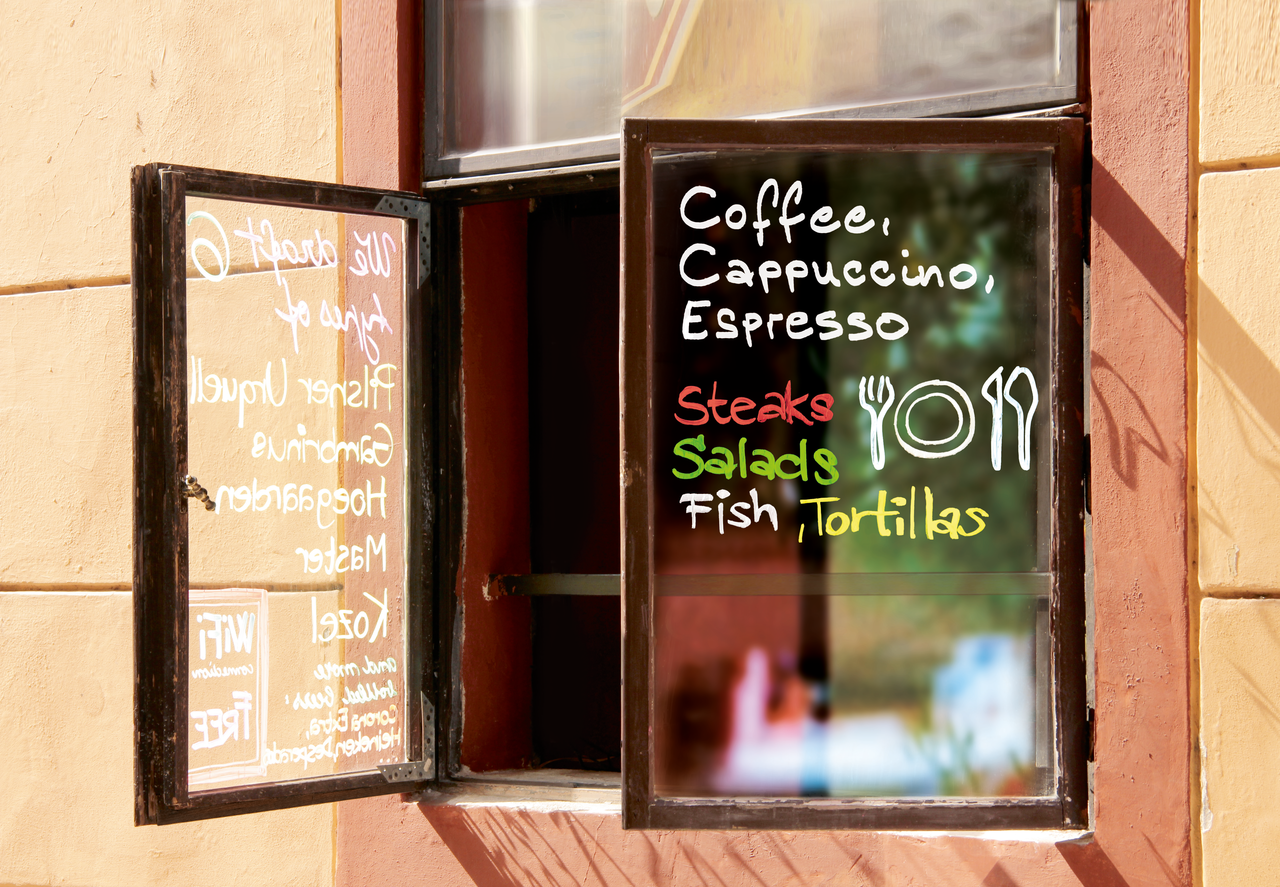 We draft 6
types of
Pilsner Urquell
Gambrinus
Hoegaarden
Master
Kozel
and more
bottled beers:
Corona Extra,
Heineken, Desperados
WiFi
connection
FREE
Coffee,
Cappuccino,
Espresso
Steaks
Salads
Fish ,Tortillas